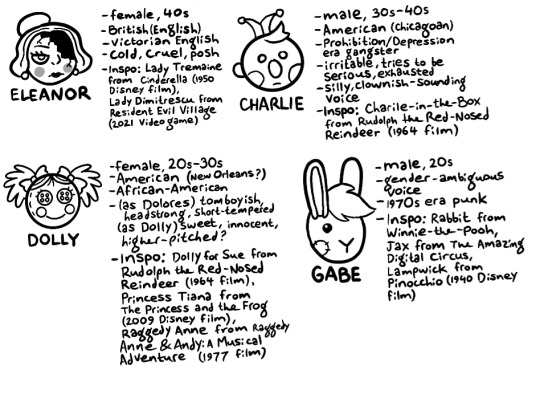 -female, 40s
-British (English)
-Victorian English
-Cold, Cruel, posh
-Inspo: Lady Tremaine
from Cinderella (1950
Disney film),
Lady Dimitrescu from
Resident Evil Village
(2021 Video game)
ELEANOR
-male, 30s-40s
-American (Chicagoan)
-Prohibition/Depression
era gangster
-irritable, tries to be
serious, exhausted
-silly, clownish-sounding
voice
-Inspo: Charlie-in-the-Box
from Rudolph the Red-Nosed
Reindeer (1964 film)
CHARLIE
-female, 20s-30s
-American (New Orleans?)
-African-American
-(as Dolores) tomboyish,
headstrong, short-tempered
(as Dolly) sweet, innocent,
higher-pitched?
-Inspo: Dolly for Sue from
Rudolph the Red-Nosed
Reindeer (1964 film),
Princess Tiana from
The Princess and the Frog
(2009 Disney film),
Raggedy Anne from Raggedy
Anne & Andy: A Musical
Adventure (1977 film)
DOLLY
-male, 20s
-gender-ambiguous
voice
-1970s era punk
-Inspo: Rabbit from
Winnie-the-Pooh,
Jax from The Amazing
Digital Circus,
Lampwick from
Pinocchio (1940 Disney
film)
GABE